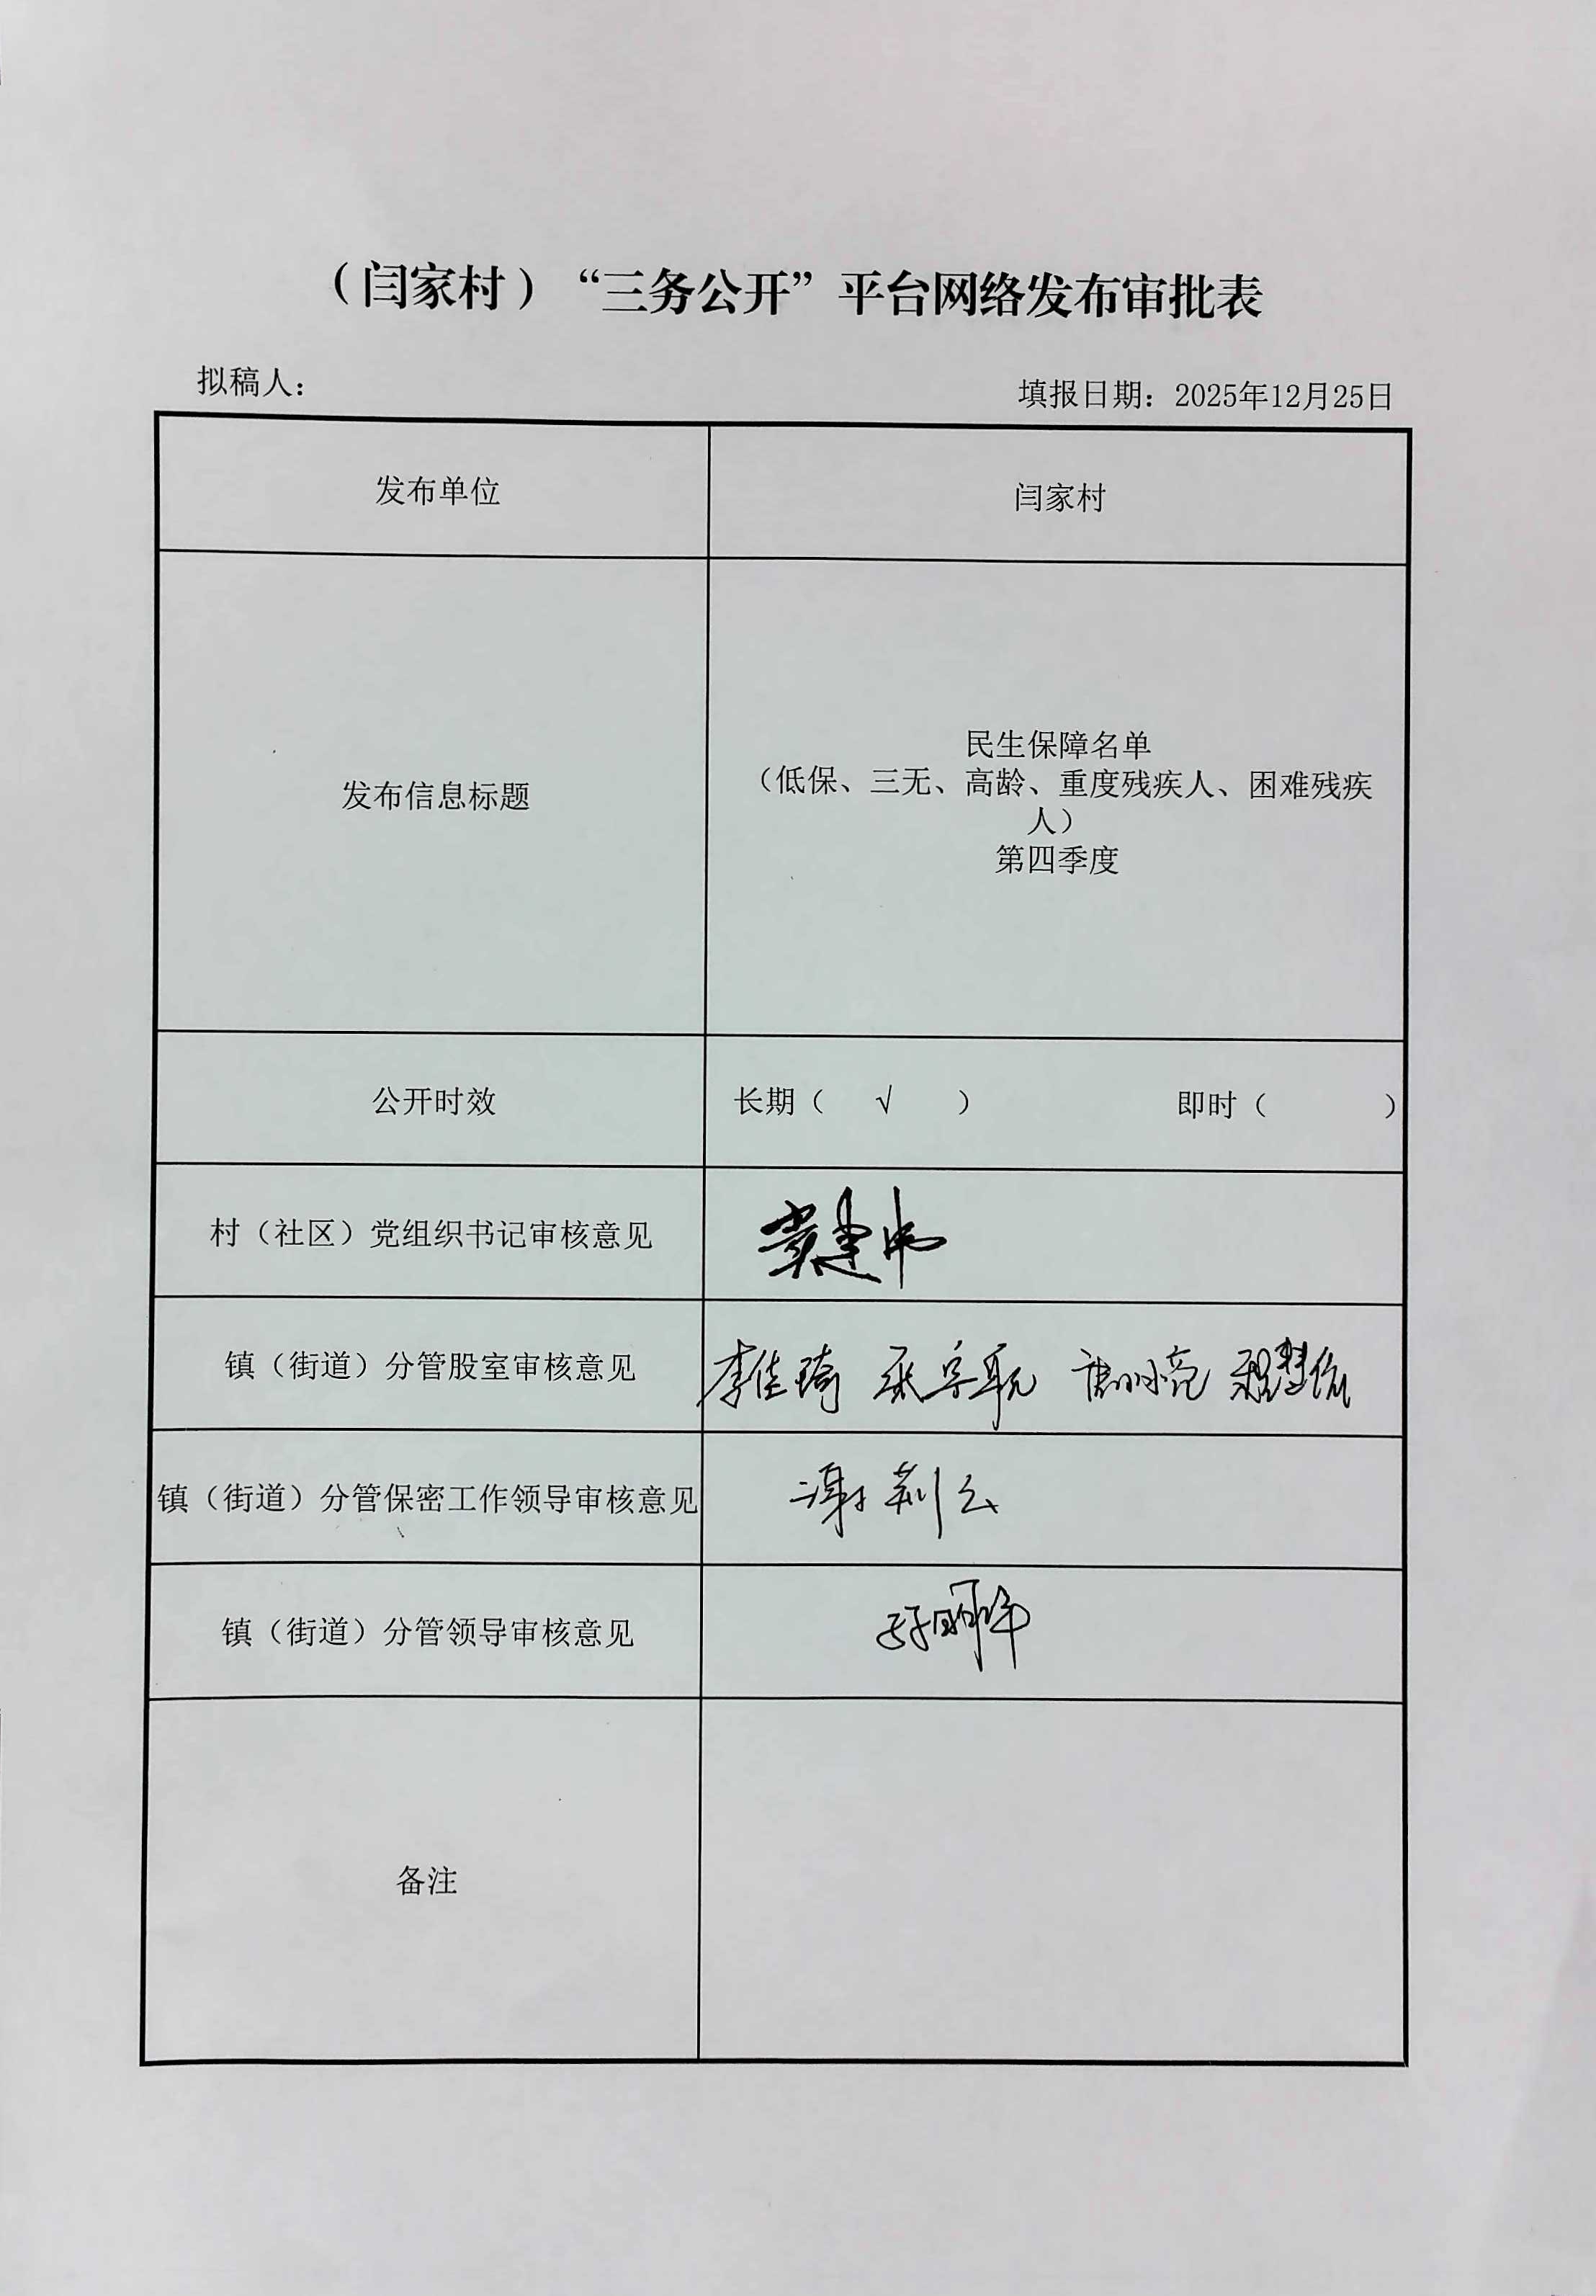 （闫家村）“三务公开”平台网络发布审批表
拟稿人： 填报日期：2025年12月25日
发布单位 闫家村
发布信息标题
民生保障名单
（低保、三无、高龄、重度残疾人、困难残疾
人）
第四季度
公开时效 长期（ √ ） 即时（ ）
村（社区）党组织书记审核意见
镇（街道）分管股室审核意见 李佳琦
镇（街道）分管保密工作领导审核意见 谢荆云
镇（街道）分管领导审核意见
备注